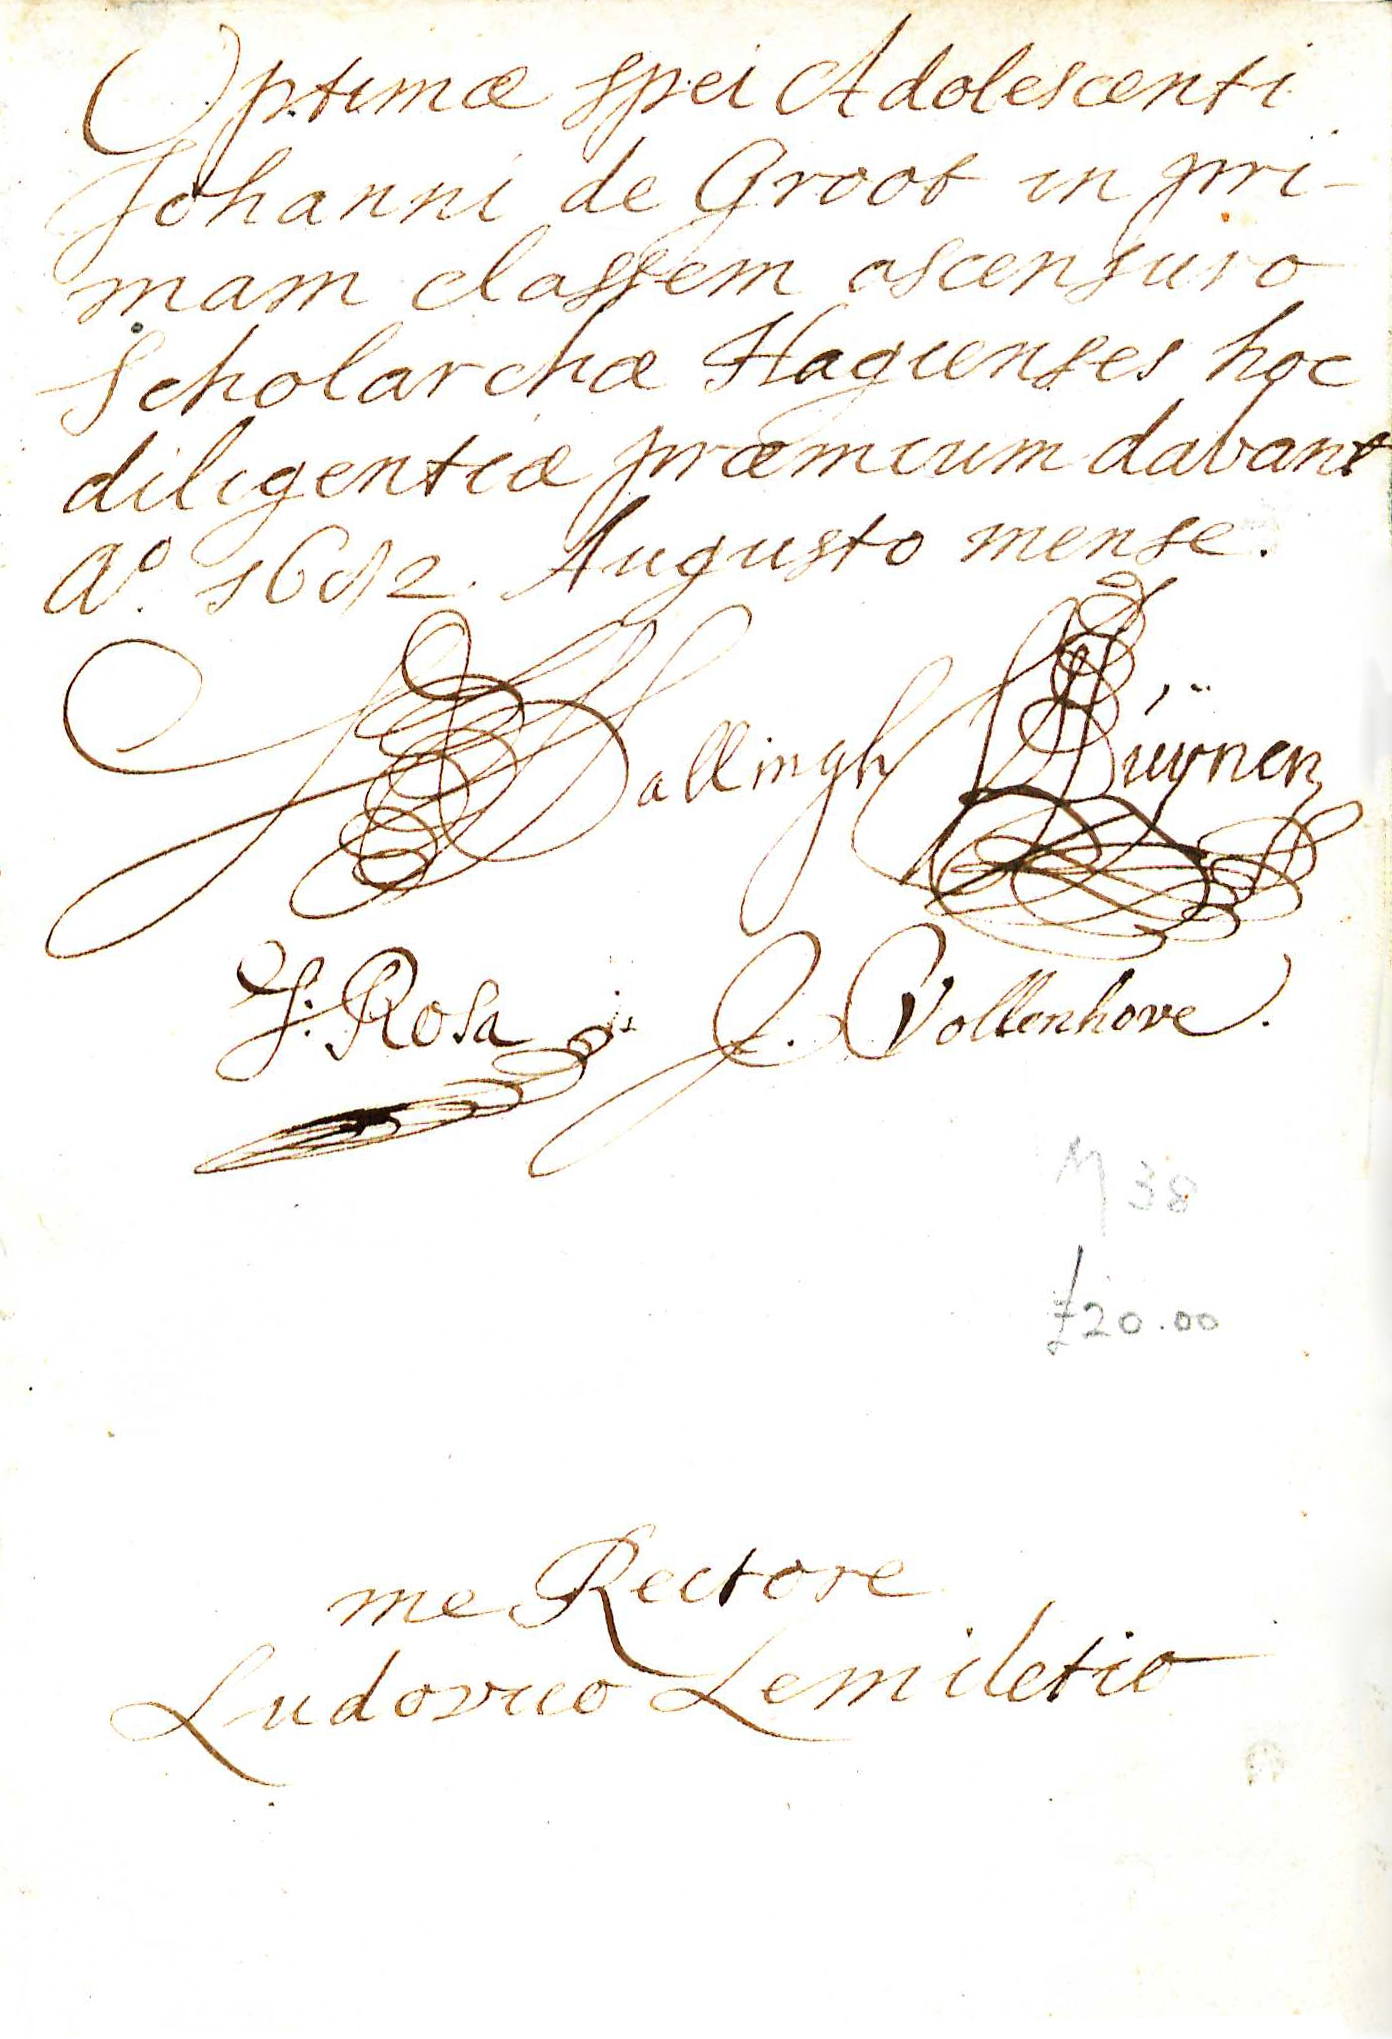 Optimæ spei Adolescenti
Johanni de Groot in pri-
mam classem ascensuro
Scholarchæ Hagienses hoc
diligentiæ præmium dabant
Aº. 1682. Augusto mense.
Hallingh Buÿnen
J: Rosa J. Vollenhove.
M 38
£20.00
me Rectore
Ludovico Lemiletio